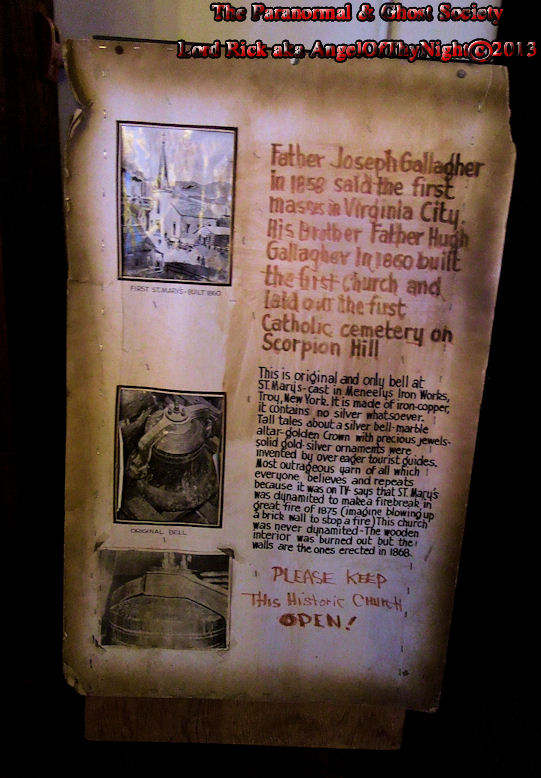 The Paranormal & Ghost Society
Lord Rick aka AngelOfThyNight©2013
Father Joseph Gallagher
in 1858 said the first
masses in Virginia City.
His Brother Father Hugh
Gallagher in 1860 built
the first church and
laid out the first
Catholic cemetery on
Scorpion Hill
FIRST ST. MARY'S - BUILT 1860
This is original and only bell at
ST. Mary's-cast in Meneelys Iron Works,
Troy, New York. It is made of iron-copper,
it contains no silver whatsoever.
Tall tales about a silver bell-marble
altar-golden Crown with precious jewels-
solid gold-silver ornaments were
invented by over eager tourist guides.
Most outrageous yarn of all which
everyone believes and repeats
because it was on TV says that ST. Mary's
was dynamited to make a firebreak in
great fire of 1875 (imagine blowing up
a brick wall to stop a fire) This church
was never dynamited-The wooden
interior was burned out but the
walls are the ones erected in 1868.
ORIGINAL BELL
PLEASE KEEP
This Historic Church
OPEN!